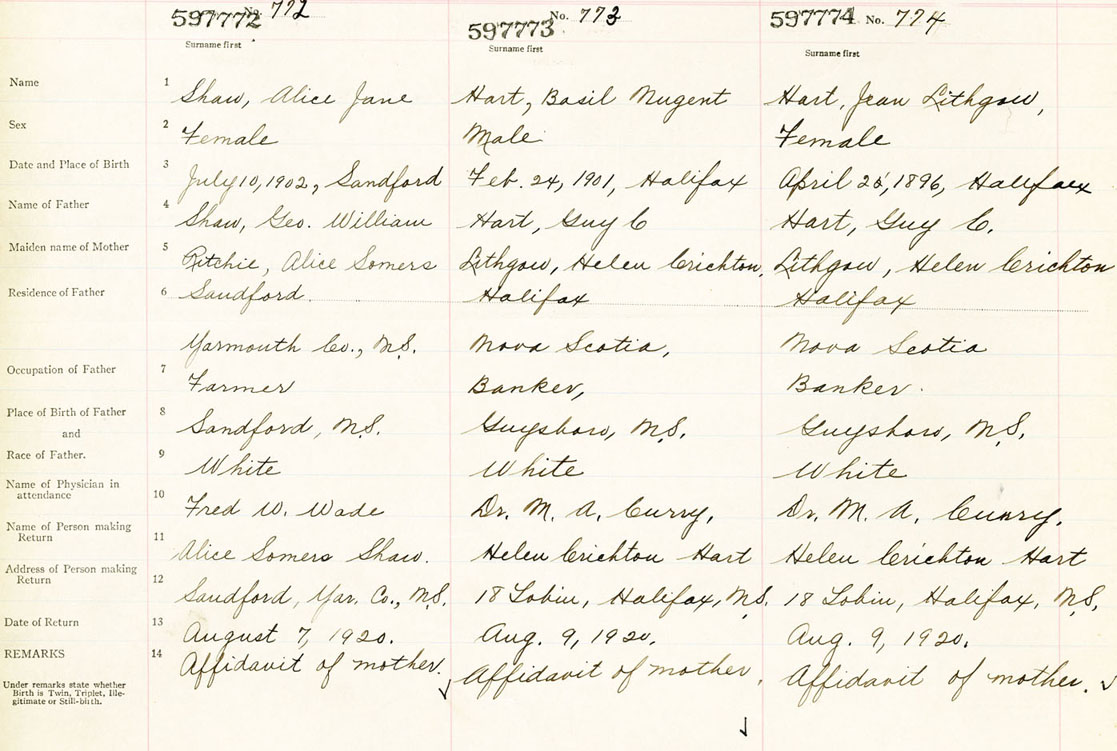 597772 No. 772 597773 No. 773 597774 No. 774
Surname first Surname first Surname first
Name 1 Shaw, Alice Jane Hart, Basil Nugent Hart, Jean Lithgow,
Sex 2 Female Male Female
Date and Place of Birth 3 July 10, 1902, Sandford Feb. 24, 1901, Halifax April 25, 1896, Halifax
Name of Father 4 Shaw, Geo. William Hart, Guy C Hart, Guy C.
Maiden name of Mother 5 Ritchie, Alice Somers Lithgow, Helen Crichton, Lithgow, Helen Crichton
Residence of Father 6 Sandford Halifax Halifax
Yarmouth Co., N.S. Nova Scotia, Nova Scotia
Occupation of Father 7 Farmer Banker, Banker.
Place of Birth of Father 8 Sandford, N.S. Guysboro, N.S. Guysboro, N.S.
and
Race of Father. 9 White White White
Name of Physician in
attendance 10 Fred W. Wade Dr. M. A. Curry, Dr. M. A. Curry,
Name of Person making
Return 11 Alice Somers Shaw. Helen Crichton Hart Helen Crichton Hart
Address of Person making
Return 12 Sandford, Yar. Co., N.S. 18 Tobin, Halifax, N.S. 18 Tobin, Halifax, N.S.
Date of Return 13 August 7, 1920. Aug. 9, 1920. Aug. 9, 1920.
REMARKS 14 Affidavit of mother. Affidavit of mother. Affidavit of mother.
Under remarks state whether
Birth is Twin, Triplet, Ille-
gitimate or Still-birth.